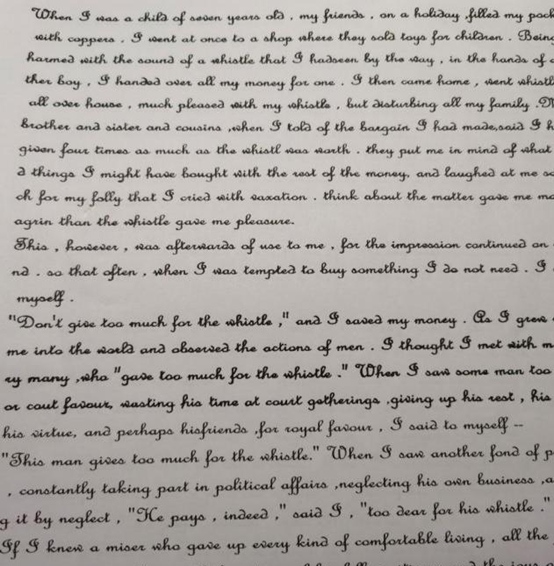 When I was a child of seven years old , my friends , on a holiday ,filled my pock
with coppers . I went at once to a shop where they sold toys for children . Being
harmed with the sound of a whistle that I hadseen by the way , in the hands of
ther boy , I handed over all my money for one . I then came home , went whistl
all over house , much pleased with my whistle , but disturbing all my family .
brother and sister and cousins ,when I told of the bargain I had made,said I h
given four times as much as the whistl was worth . they put me in mind of what
d things I might have bought with the rest of the money, and laughed at me so
ch for my folly that I cried with vaxation . think about the matter gave me mo
agrin than the whistle gave me pleasure.
This , however , was afterwards of use to me , for the impression continued on
nd . so that often , when I was tempted to buy something I do not need . I
myself .
"Don't give too much for the whistle ," and I saved my money . As I grew
me into the world and observed the actions of men . I thought I met with m
ry many ,who "gave too much for the whistle ." When I saw some man too
or cout favour, wasting his time at court getherings ,giving up his rest , his
his virtue, and perhaps hisfriends ,for royal favour , I said to myself --
"This man gives too much for the whistle." When I saw another fond of p
, constantly taking part in political affairs ,neglecting his own business ,a
g it by neglect , "He pays , indeed ," said I , "too dear for his whistle ."
If I knew a miser who gave up every kind of comfortable living , all the